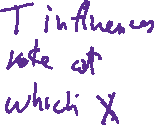 T influences
rate at
which X